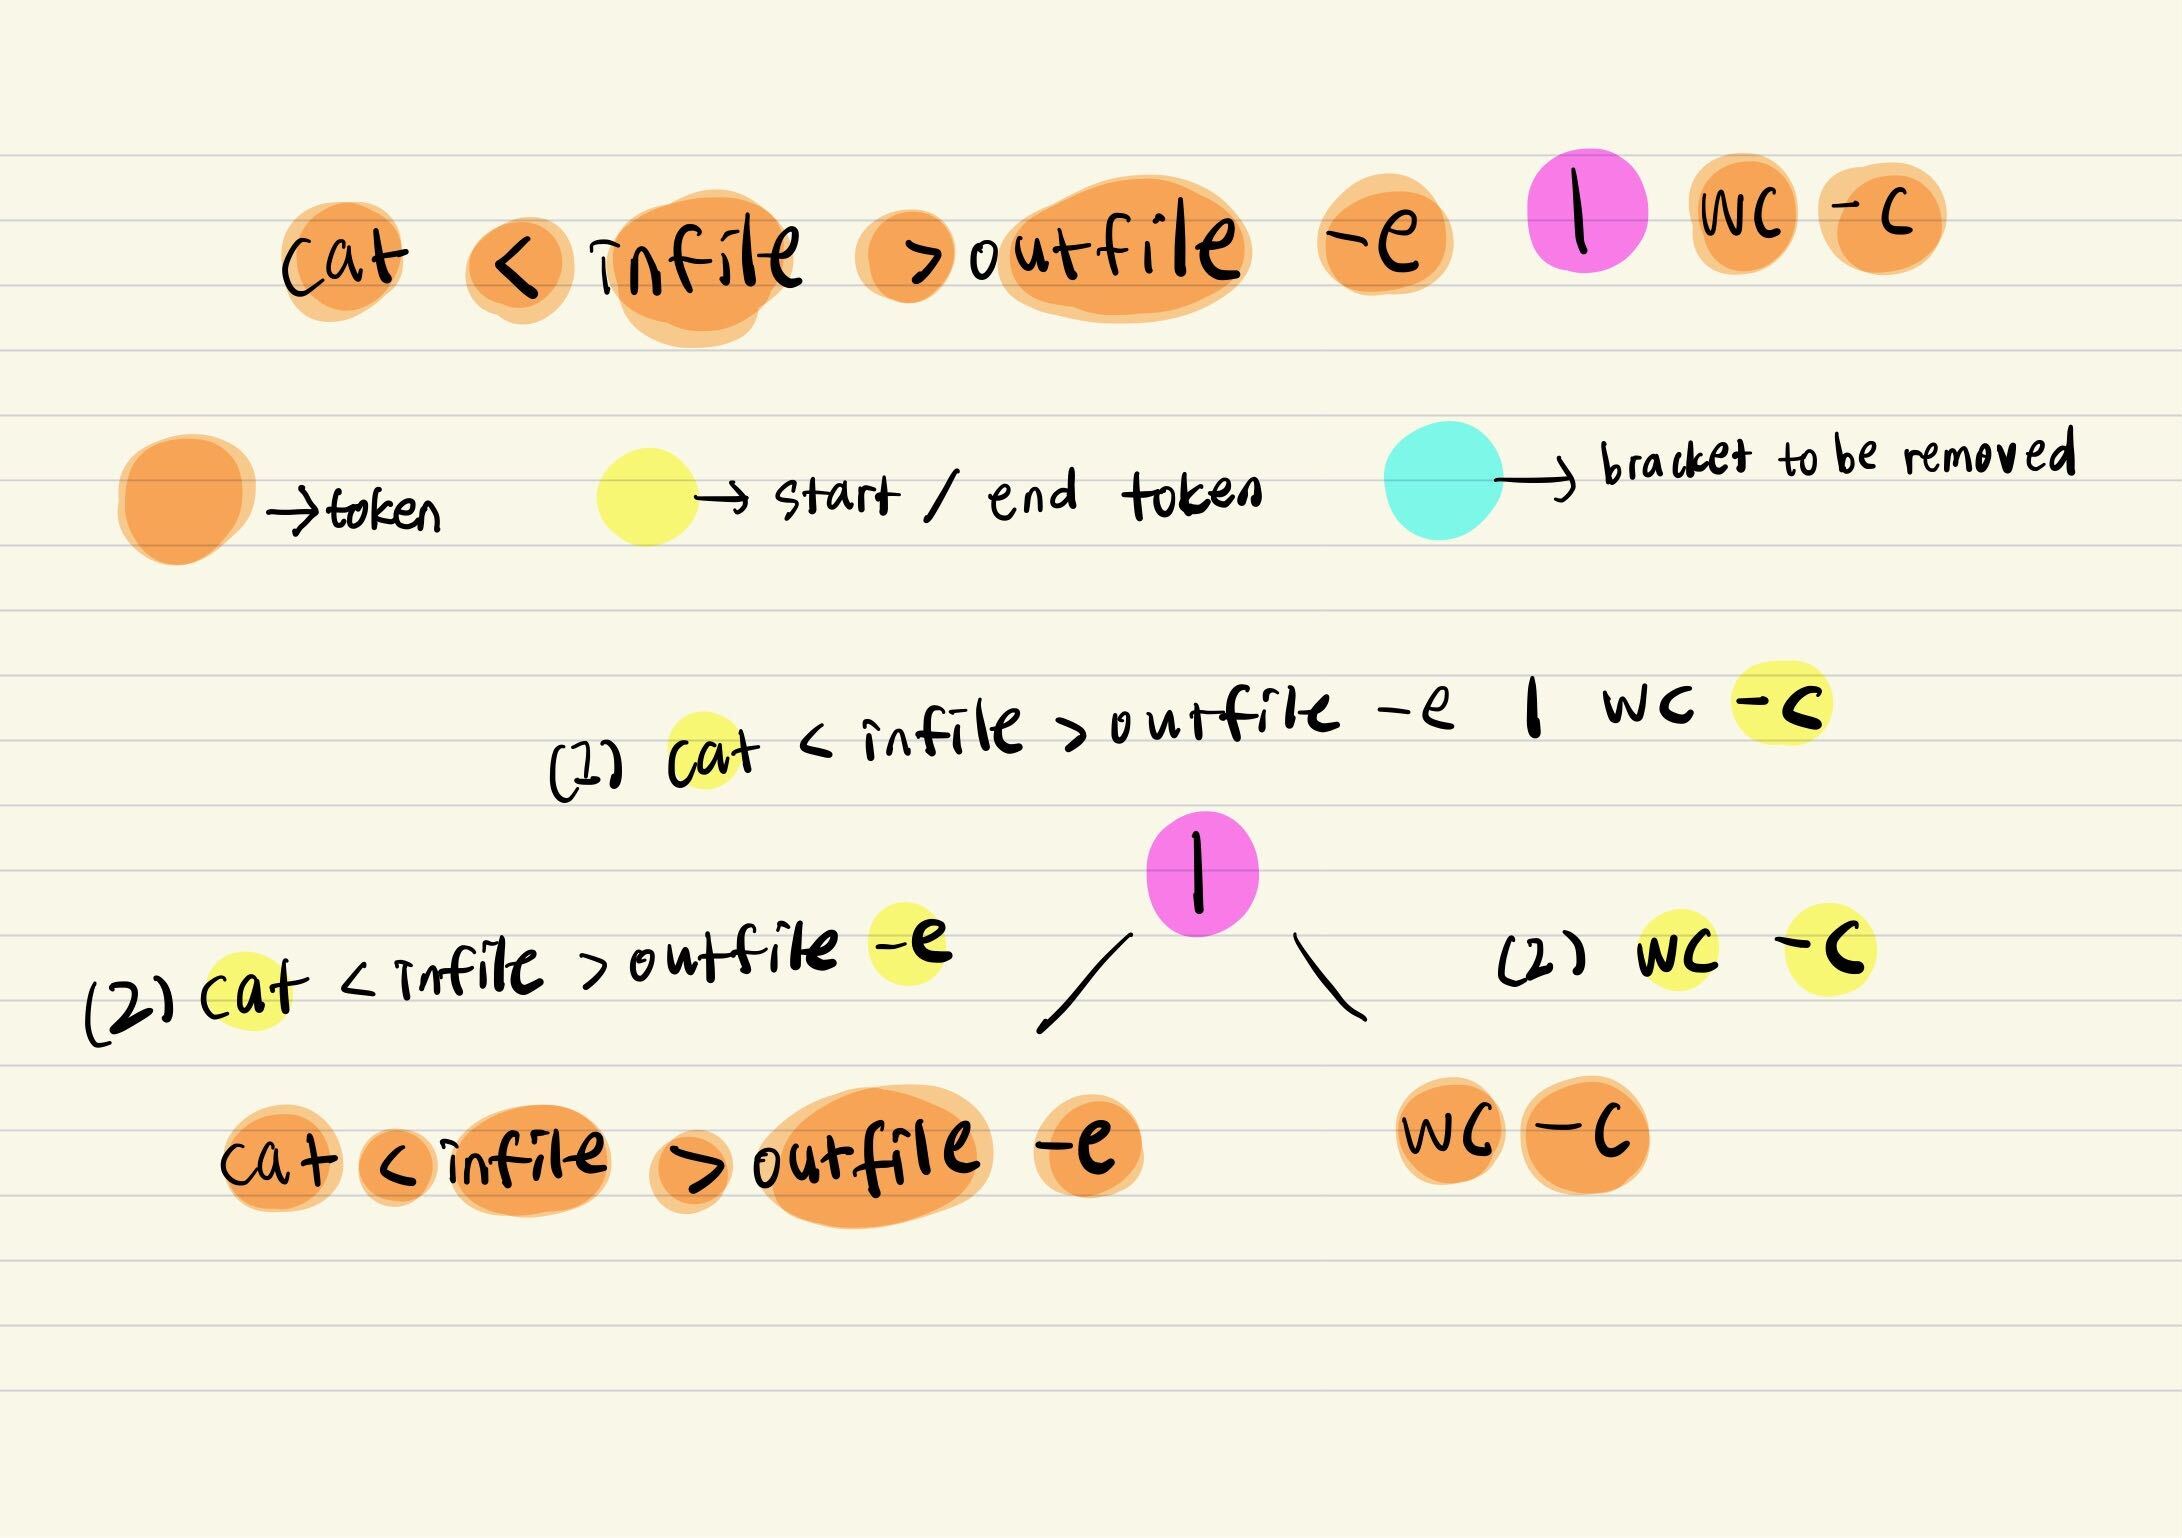 cat < infile > outfile -e | wc -c
→ token → start / end token → bracket to be removed
(1) cat < infile > outfile -e | wc -c
|
(2) cat < infile > outfile -e
(2) wc -c
cat < infile > outfile -e
wc -c